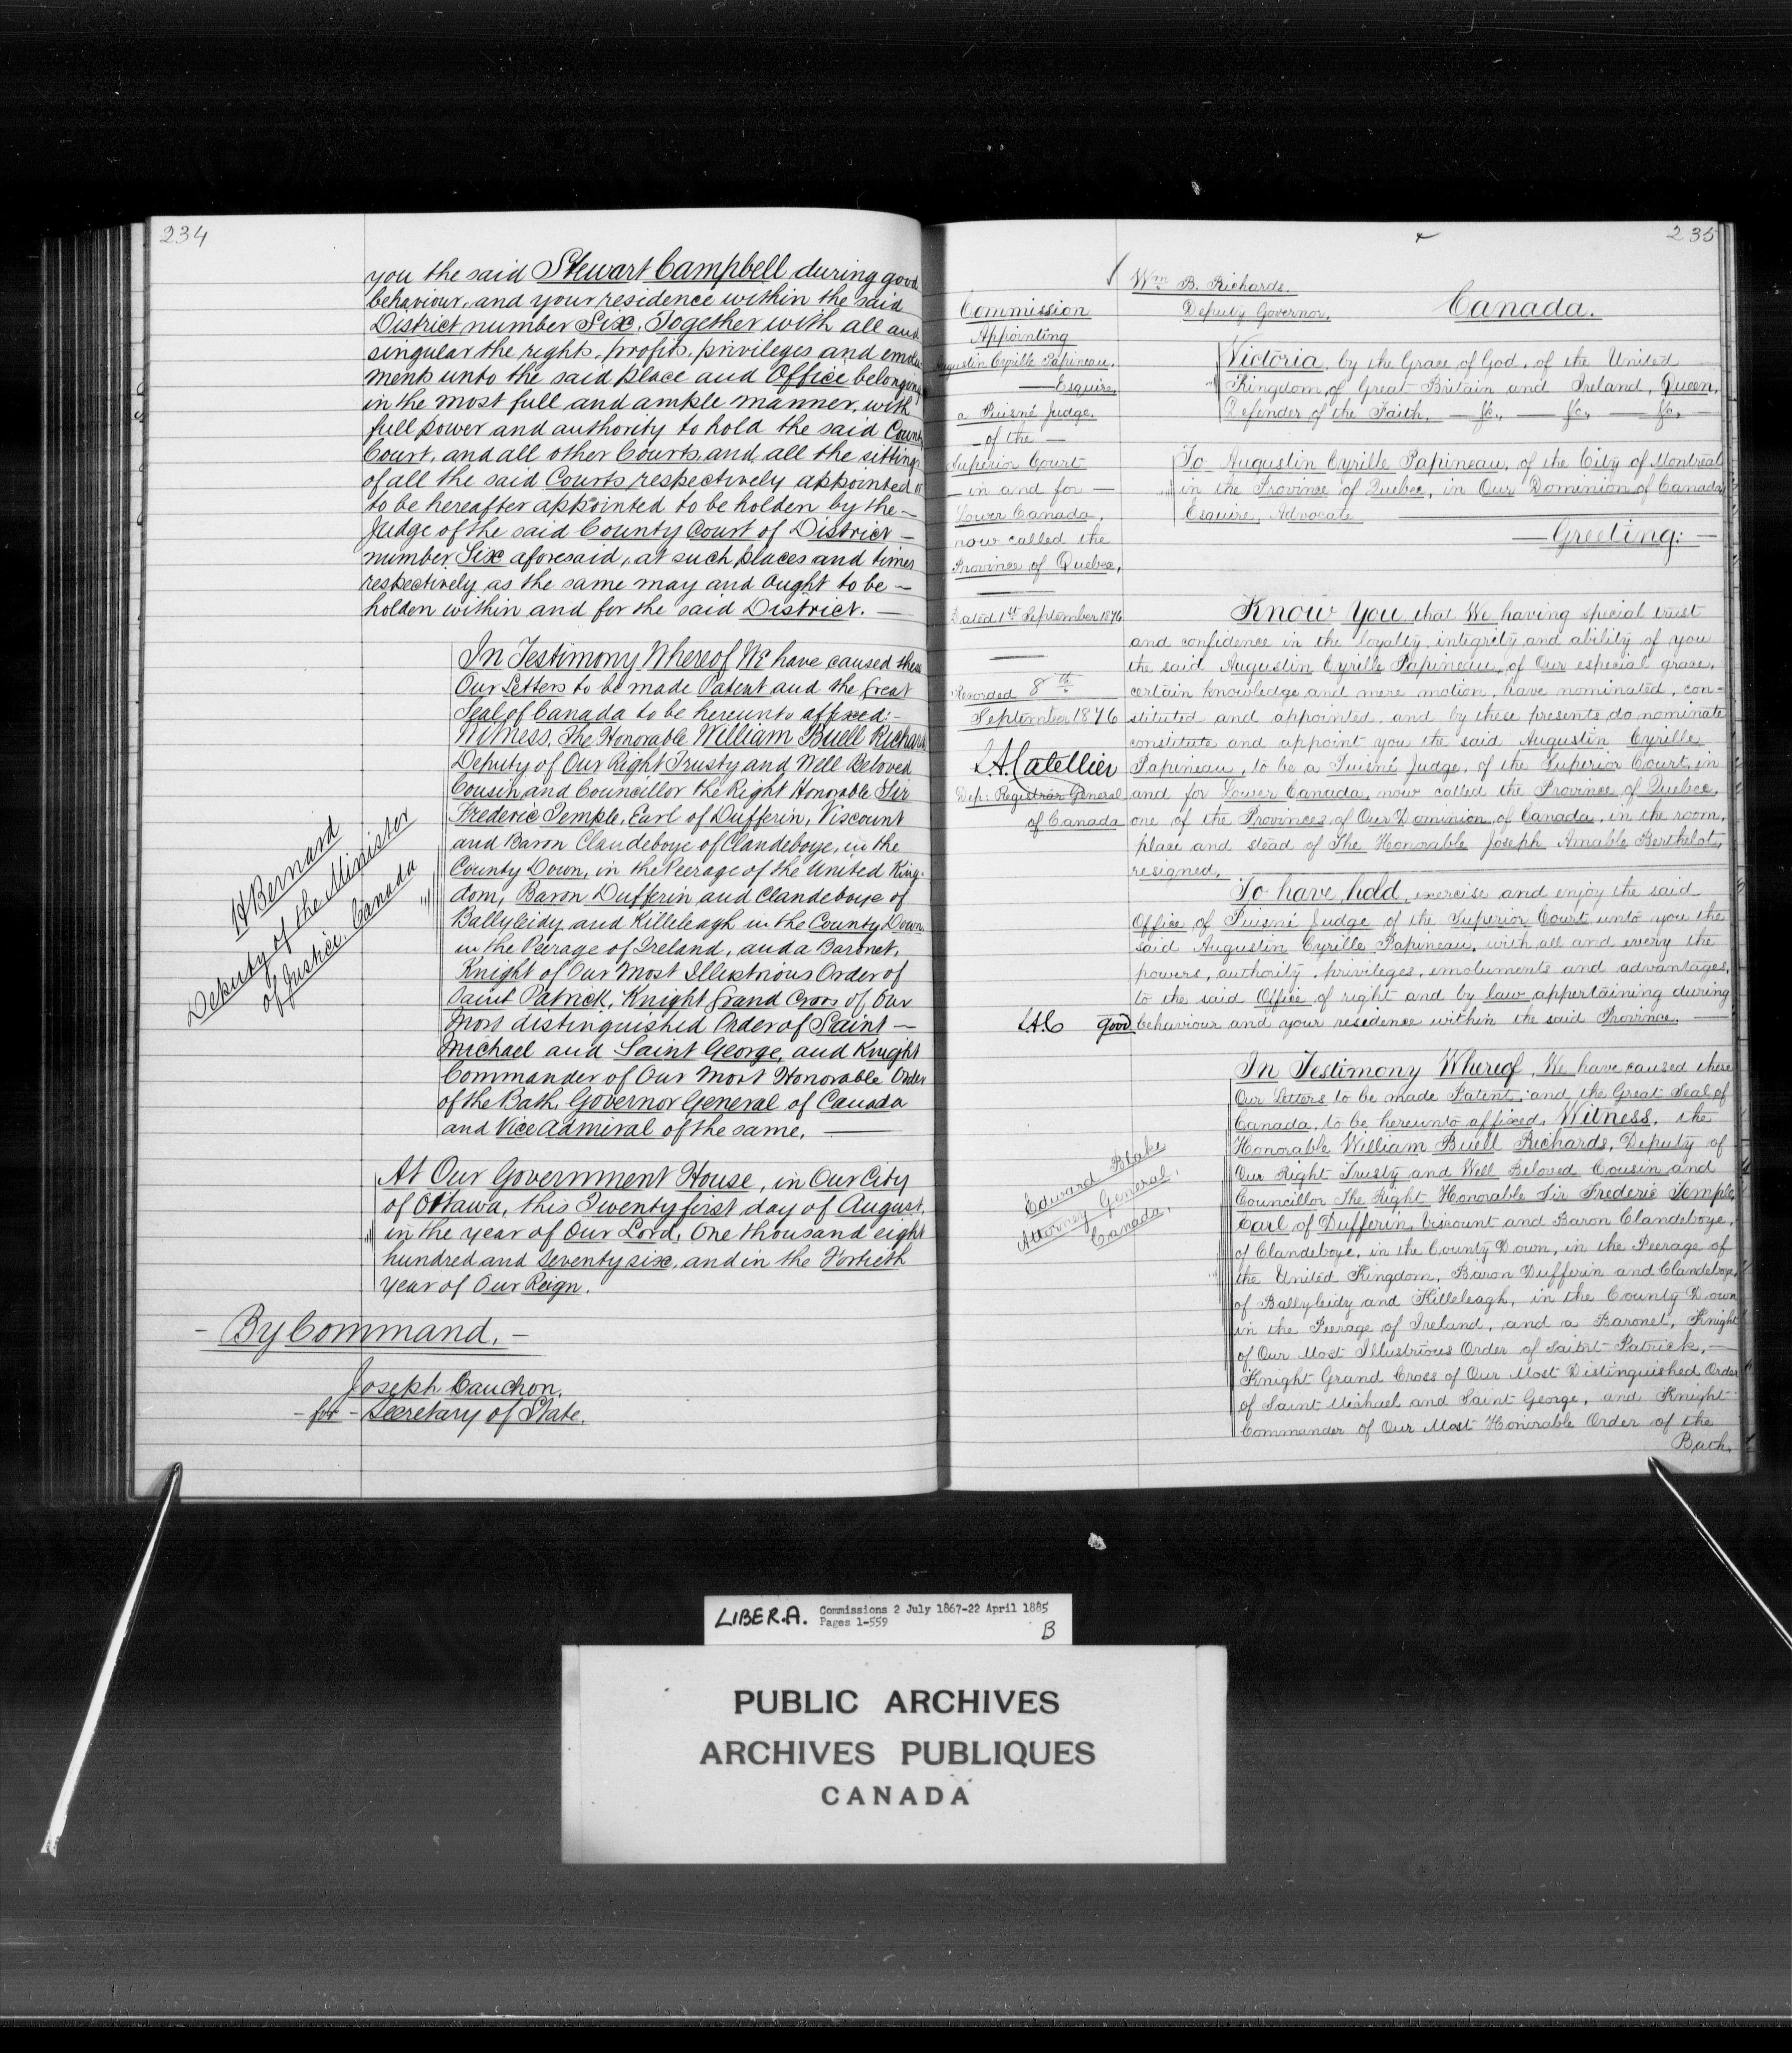 234
you the said Stewart Campbell during good
behaviour, and your residence within the said
District number Six. Together with all and
singular the rights, profits, privileges and emolu
ments unto the said place and Office belonging
in the most full and ample manner, with
full power and authority to hold the said County
Court, and all other Courts and all the sittings
of all the said Courts respectively appointed or
to be hereafter appointed to be holden by the —
Judge of the said County Court of District —
number Six aforesaid, at such places and times
respectively as the same may and Ought to be —
holden within and for the said District. —
In Testimony Whereof We have caused these
Our Letters to be made Patent and the Great
Seal of Canada to be hereunto affixed:—
Witness, The Honorable William Buell Richards
Deputy of Our Right Trusty and Well Beloved
Cousin and Councillor the Right Honorable Sir
Frederic Temple, Earl of Dufferin, Viscount
and Baron Clandeboye of Clandeboye, in the
County Down, in the Peerage of the United King-
dom, Baron Dufferin and Clandeboye of
Ballyleidy and Killeleagh in the County Down
in the Peerage of Ireland, and a Baronet,
Knight of Our Most Illustrious Order of
Saint Patrick, Knight Grand Cross of Our
Most distinguished Order of Saint —
Michael and Saint George, and Knight
Commander of Our Most Honorable Order
of the Bath, Governor General of Canada
and Vice Admiral of the same. —
H Bernard
Deputy of the Minister
of Justice, Canada
At Our Government House, in Our City
of Ottawa, this Twenty first day of August,
in the year of Our Lord, One thousand eight
hundred and Seventy six, and in the Fortieth
year of Our Reign.
- By Command. -
Joseph Cauchon.
- for - Secretary of State.
235
Wm B. Richards.
Deputy Governor.
Canada.
Commission
Appointing
Augustin Cyrille Papineau,
— Esquire,
a Puisné Judge,
— of the —
Superior Court
— in and for —
Lower Canada,
now called the
Province of Quebec,
Dated 1st September 1876
Recorded 8th
September 1876
L.A. Catellier
Dep: Registrar General
of Canada
Victoria, by the Grace of God, of the United
Kingdom, of Great Britain and Ireland, Queen,
Defender of the Faith, — &c, — &c, — &c, —
To Augustin Cyrille Papineau, of the City of Montreal
in the Province of Quebec, in Our Dominion of Canada,
Esquire, Advocate
— Greeting: —
Know You, that We having special trust
and confidence in the loyalty, integrity and ability of you
the said Augustin Cyrille Papineau, of Our especial grace,
certain knowledge and mere motion, have nominated, con-
stituted and appointed, and by these presents do nominate
constitute and appoint you the said Augustin Cyrille
Papineau, to be a Puisné Judge, of the Superior Court in
and for Lower Canada, now called the Province of Quebec,
one of the Provinces of Our Dominion of Canada, in the room,
place and stead of The Honorable Joseph Amable Berthelot,
resigned.
To have, hold, exercise and enjoy the said
Office of Puisné Judge of the Superior Court unto you the
said Augustin Cyrille Papineau, with all and every the
powers, authority, privileges, emoluments and advantages,
to the said Office of right and by law appertaining during
LAC good behaviour and your residence within the said Province. —
In Testimony Whereof, We have caused these
Our Letters to be made Patent, and the Great Seal of
Canada, to be hereunto affixed. Witness, the
Honorable William Buell Richards, Deputy of
Our Right Trusty and Well Beloved Cousin and
Councillor The Right Honorable Sir Frederic Temple
Earl of Dufferin, Viscount and Baron Clandeboye,
of Clandeboye, in the County Down, in the Peerage of
the United Kingdom, Baron Dufferin and Clandeboye,
of Ballyleidy and Killeleagh, in the County Down
in the Peerage of Ireland, and a Baronet, Knight
of Our Most Illustrious Order of Saint Patrick, —
Knight Grand Cross of Our Most Distinguished Order
of Saint Michael and Saint George, and Knight
Commander of Our Most Honorable Order of the
Bath,
Edward Blake
Attorney General,
Canada.
LIBER.A. Commissions 2 July 1867-22 April 1885
Pages 1-559
B
PUBLIC ARCHIVES
ARCHIVES PUBLIQUES
CANADA